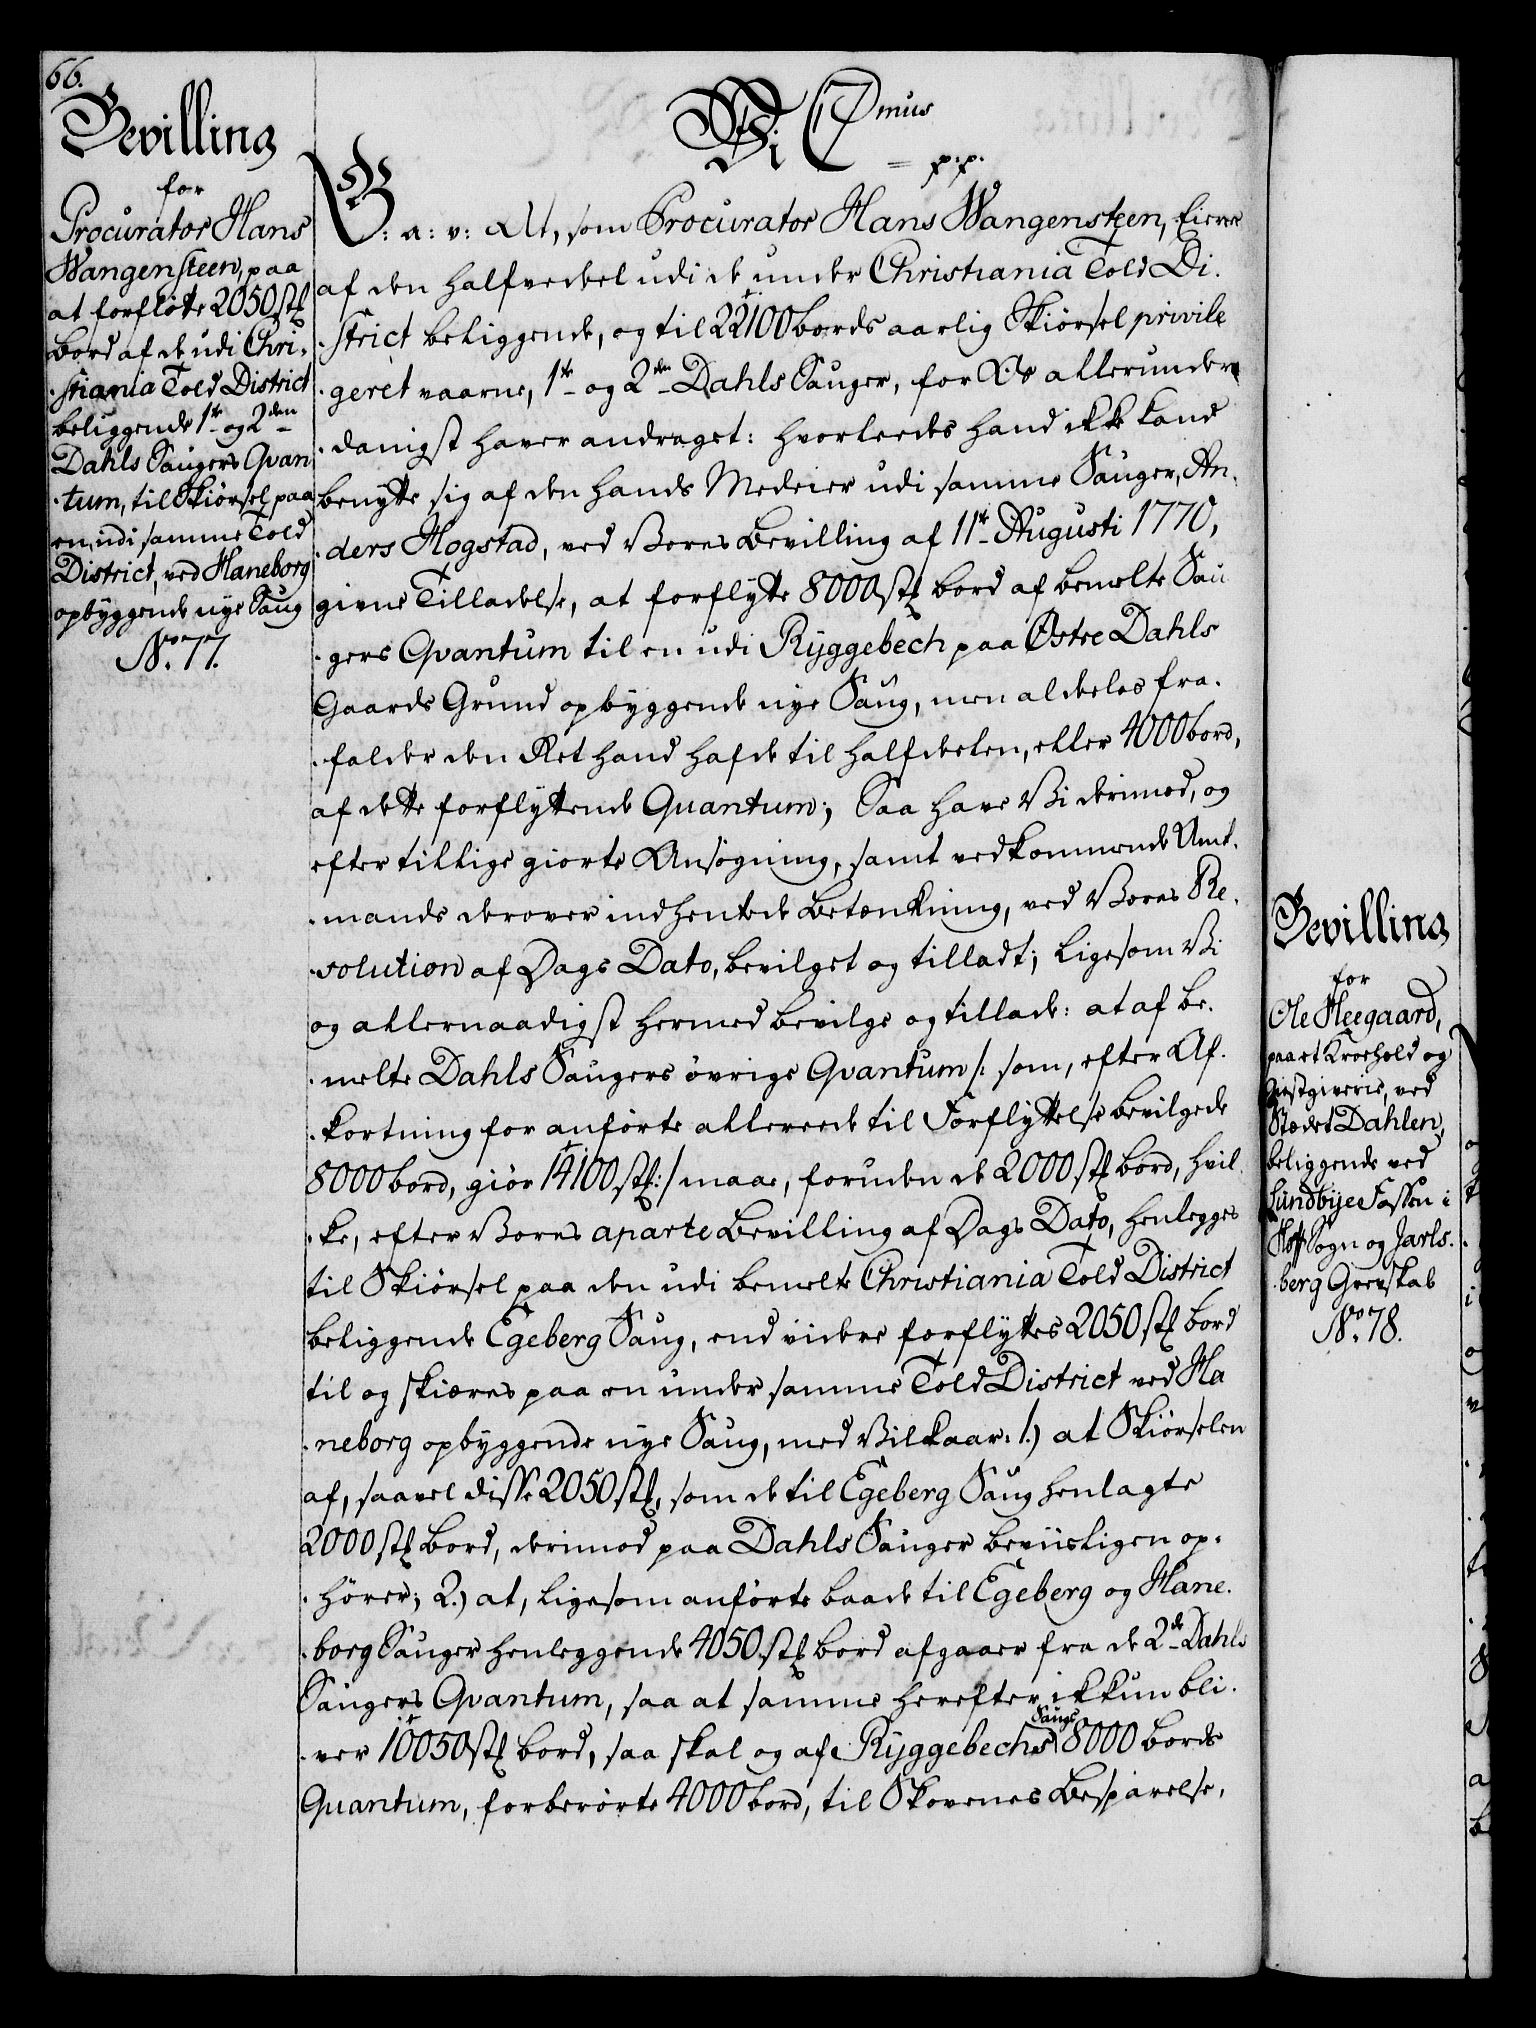 66.
Bevilling
for
Procurator Hans
Wangensteen, paa
at forflötte 2050 stk
bord af de udi Chri-
stiania Told District
beliggende 1te og 2den
Dahls Saugers Qvan
tum, til Skiörsel paa
en, udi samme Told
District, ved Haneborg
opbyggende nye Saug
No. 77.
Vi C7mus
p:p:
G: a: v: At, som Procurator Hans Wangensteen, Eier
af den halfvedeel udi de under Christiania Told Di-
strict beliggende, og til 22100 bords aarlig Skiörsel privile
geret vaarne, 1te og 2den Dahls Sauger, for Os allerunder
danigst haver andraget: hvorleedes hand ikke kand
benytte sig af den hands Medeier udi samme Sauger, An-
ders Hogstad, ved Vores Bevilling af 11te Augusti 1770,
givne Tilladelse, at forflytte 8000 stk bord af bemelte Sau
gers Qvantum til en udi Ryggebech paa Östre Dahls
Gaards Grund opbyggende nye Saug, men aldeeles fra-
falder den Ret hand hafde til halfdeelen, eller 4000 bord,
af dette forflyttende Quantum; Saa have Vi derimod, og
efter tillige giorte Ansögning, samt vedkommende Amt-
mands derover indhentede Betænkning, ved Vores Re-
solution af Dags Dato, bevilget og tilladt; ligesom Vi
og allernaadigst hermed bevilge og tillade: at af be-
melte Dahls Saugers övrige Qvantum /: som, efter Af-
kortning for anförte allereede til Forflyttelse bevilgede
8000 bord, giör 14100 stk :/ maae, foruden de 2000 stk bord, hvil
ke, efter Vores aparte Bevilling af Dags Dato, henlegges
til Skiörsel paa den udi bemelte Christiania Told District
beliggende Egeberg Saug, end videre forflyttes 2050 stk bord
til og skiæres paa en under samme Told District ved Ha
neborg opbyggende nye Saug, med Vilkaar: 1.) at Skiörselen
af, saavel disse 2050 stk, som de til Egeberg Saug henlagte
2000 stk bord, derimod paa Dahls Sauger beviisligen op-
hörer; 2.) at, ligesom anförte baade til Egeberg og Hane-
borg Sauger henleggende 4050 stk bord afgaaer fra de 2de Dahls
Saugers Qvantum, saa at samme herefter ikkun bli-
ver 10050 stk bord, saa skal og af Ryggebechs Saugs 8000 bords
Quantum, forberörte 4000 bord, til Skovenes Besparelse,
Bevilling
for
Ole Heegaard,
paa et Kroehold og
Giestgiverie, ved
Stædet Dahlen,
beliggende ved
Lundbyee Fossen i
Hoff Sogn og Jarls-
berg Grevskab
No. 78.